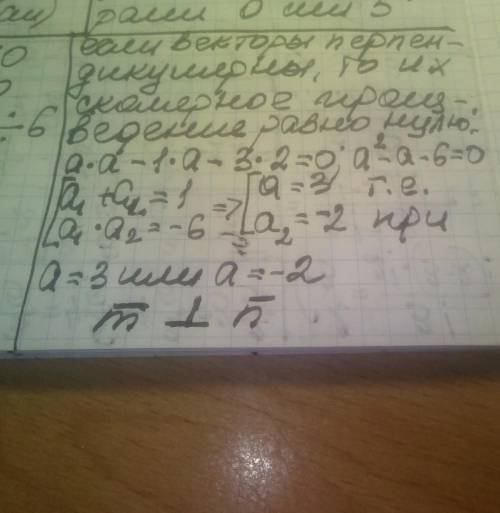 рами 0 или 5
0
если векторы перпен-
дикулярны, то их
÷6
скалярное произ-
ведение равно нулю:
a·a - 1·a - 3·2=0; a²-a-6=0
[a₁ + a₂ = 1 => [a = 3 т.е.
[a₁ · a₂ = -6 [a₂ = -2 при
a = 3 или a = -2
m̅ ⊥ n̅